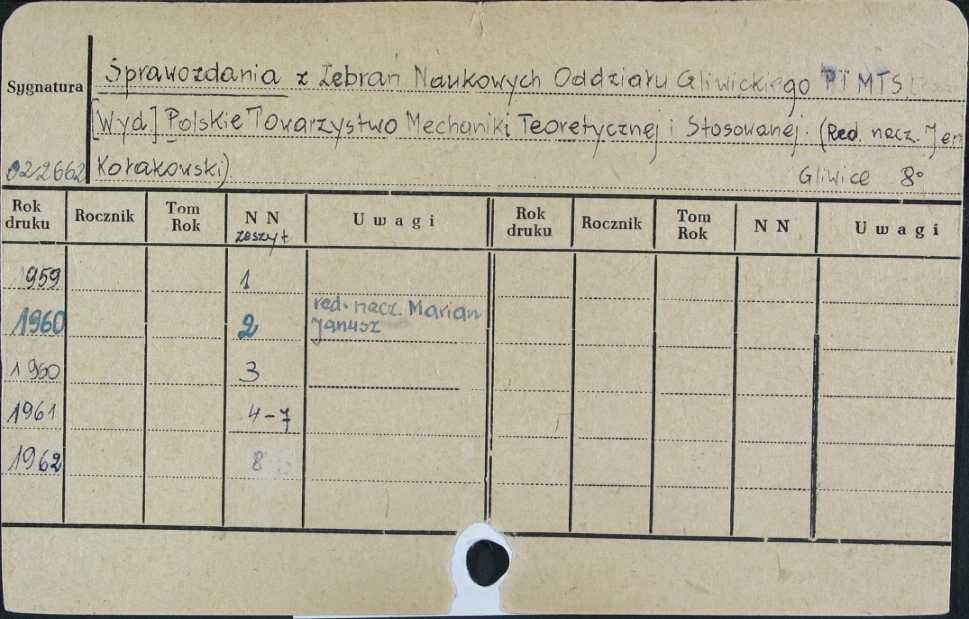 Sprawozdania z Zebrań Naukowych Oddziału Gliwickiego PTMTS
Sygnatura
[Wyd.] Polskie Towarzystwo Mechaniki Teoretycznej i Stosowanej. (Red. nacz. Jen
022662 Kołakowski).
Gliwice 8°
Rok druku Rocznik Tom Rok N N zeszyt Uwagi Rok druku Rocznik Tom Rok N N Uwagi
1959 1
1960 2 red. nacz. Marian Janusz
1960 3
1961 4-7
1962 8